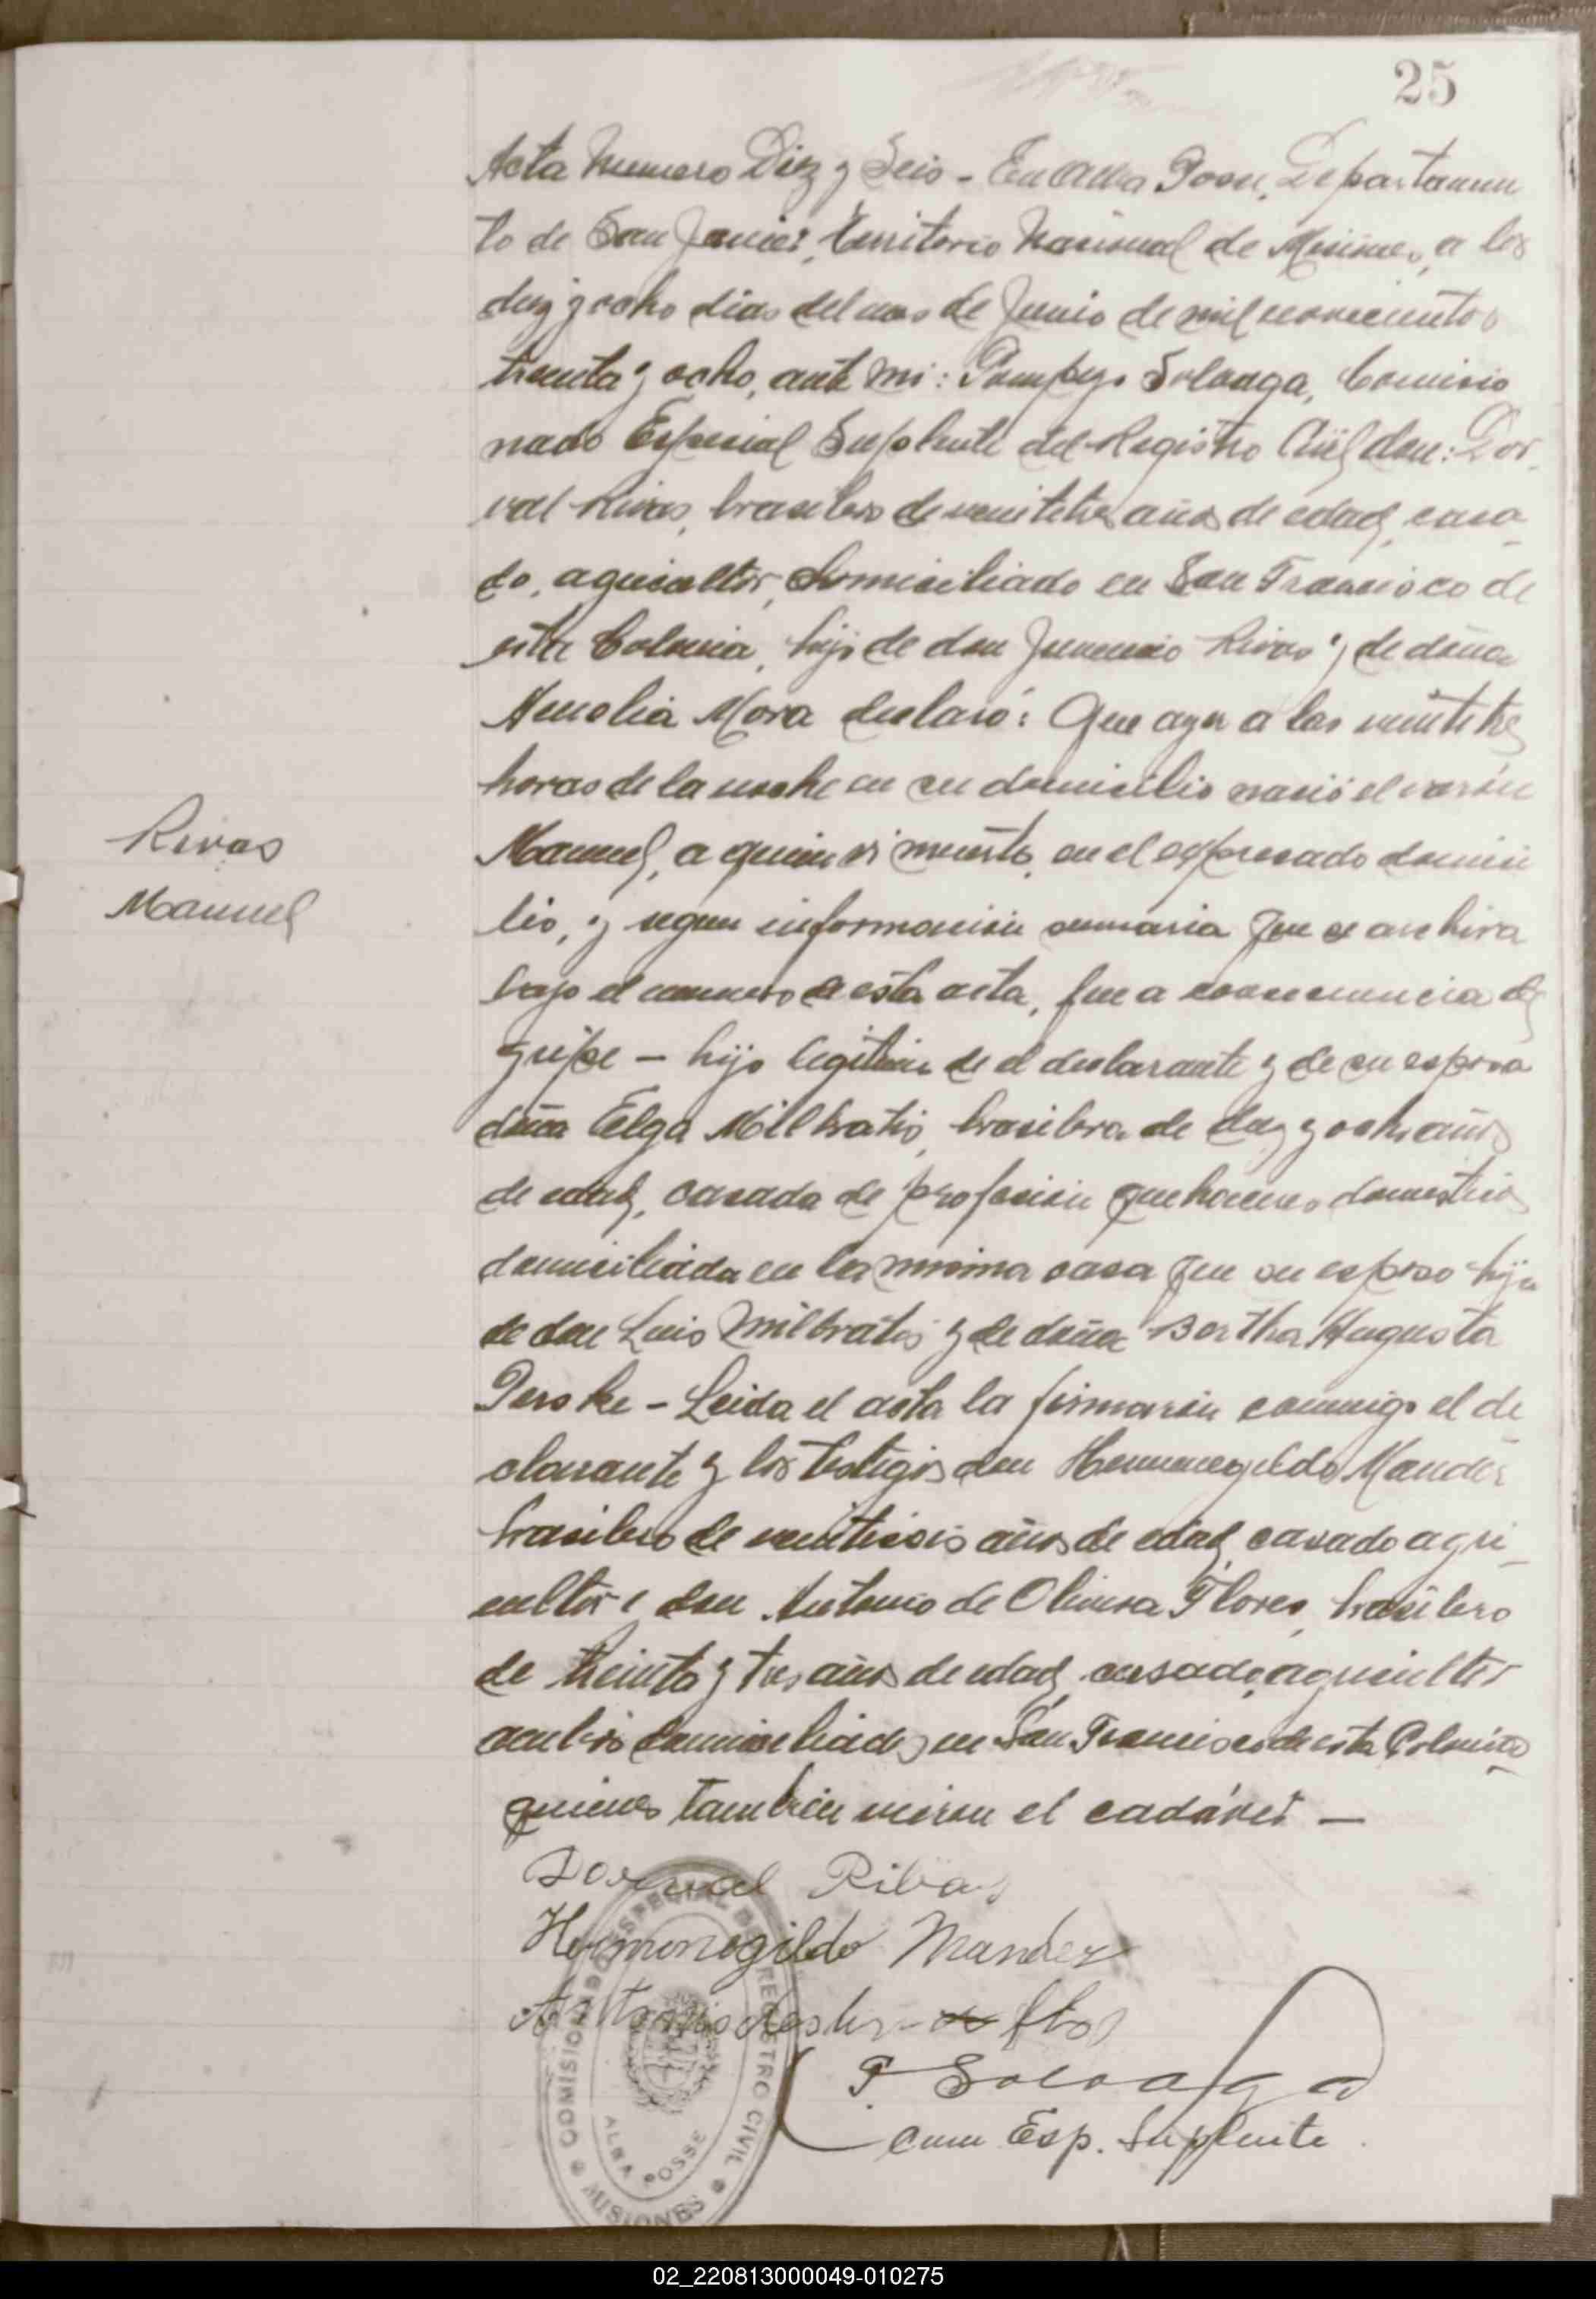 25
Acta Numero Diez y Seis - En Alba Posse, Departamen
to de San Javier, Territorio Nacional de Misiones, a los
diez y ocho dias del mes de Junio de mil novecientos
treinta y ocho, ante mi: Pompeyo Solvaga, Comisio
nado Especial Suplente del Registro Civil don: Dor
val Rivas, brasilero de veintitres años de edad, casa-
do, agricultor, domiciliado en San Francisco de
esta Colonia, hijo de don Juvencio Rivas y de doña
Amelia Mora declaró: Que ayer a las veintitres
horas de la noche en su domicilio nació el varón
Rivas
Manuel
Manuel, a quien vi muerto, en el expresado domici
lio, y segun informacion sumaria que se archiva
bajo el numero de esta acta, fue a consecuencia de
gripe - hijo legitimo de el declarante y de su esposa
doña Elga Milbratis, brasilera de diez y ocho años
de edad, casada de profesión quehaceres domesticos
domiciliada en la misma casa que su esposo hija
de don Luis Milbratis y de doña Bertha Augusta
Perske - Leida el acta la firmaron conmigo el de
clarante y los testigos don Hermenegildo Mander
brasilero de veintiseis años de edad, casado agri-
cultor e don Antonio de Olivera Flores, brasilero
de treinta y tres años de edad, casado, agricultor
ambos domiciliados en San Francisco de esta Colonia
quienes tambien vieron el cadáver -
Dorwal Ribas
Hermenegildo Mander
P Solvaga
Com Esp. Suplente
COMISIONADO ESPECIAL DE REGISTRO CIVIL
ALBA POSSE
MISIONES
02_220813000049-010275